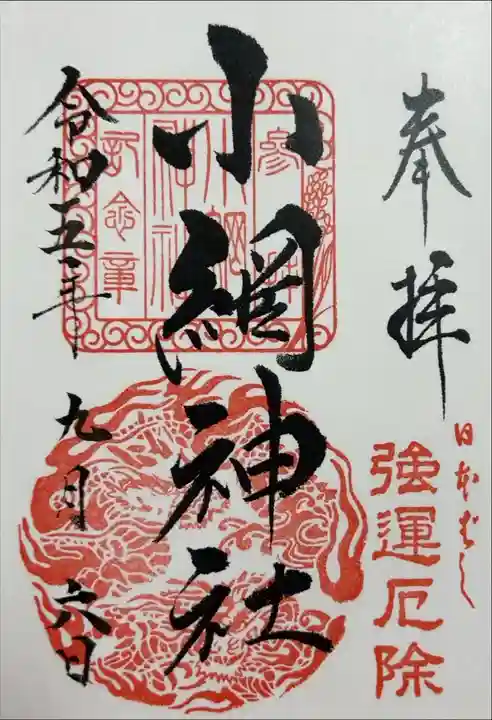 奉拝
日本ばし
強運厄除
小網神社
参拝
小網神社
記念章
令和五年 九月 六日